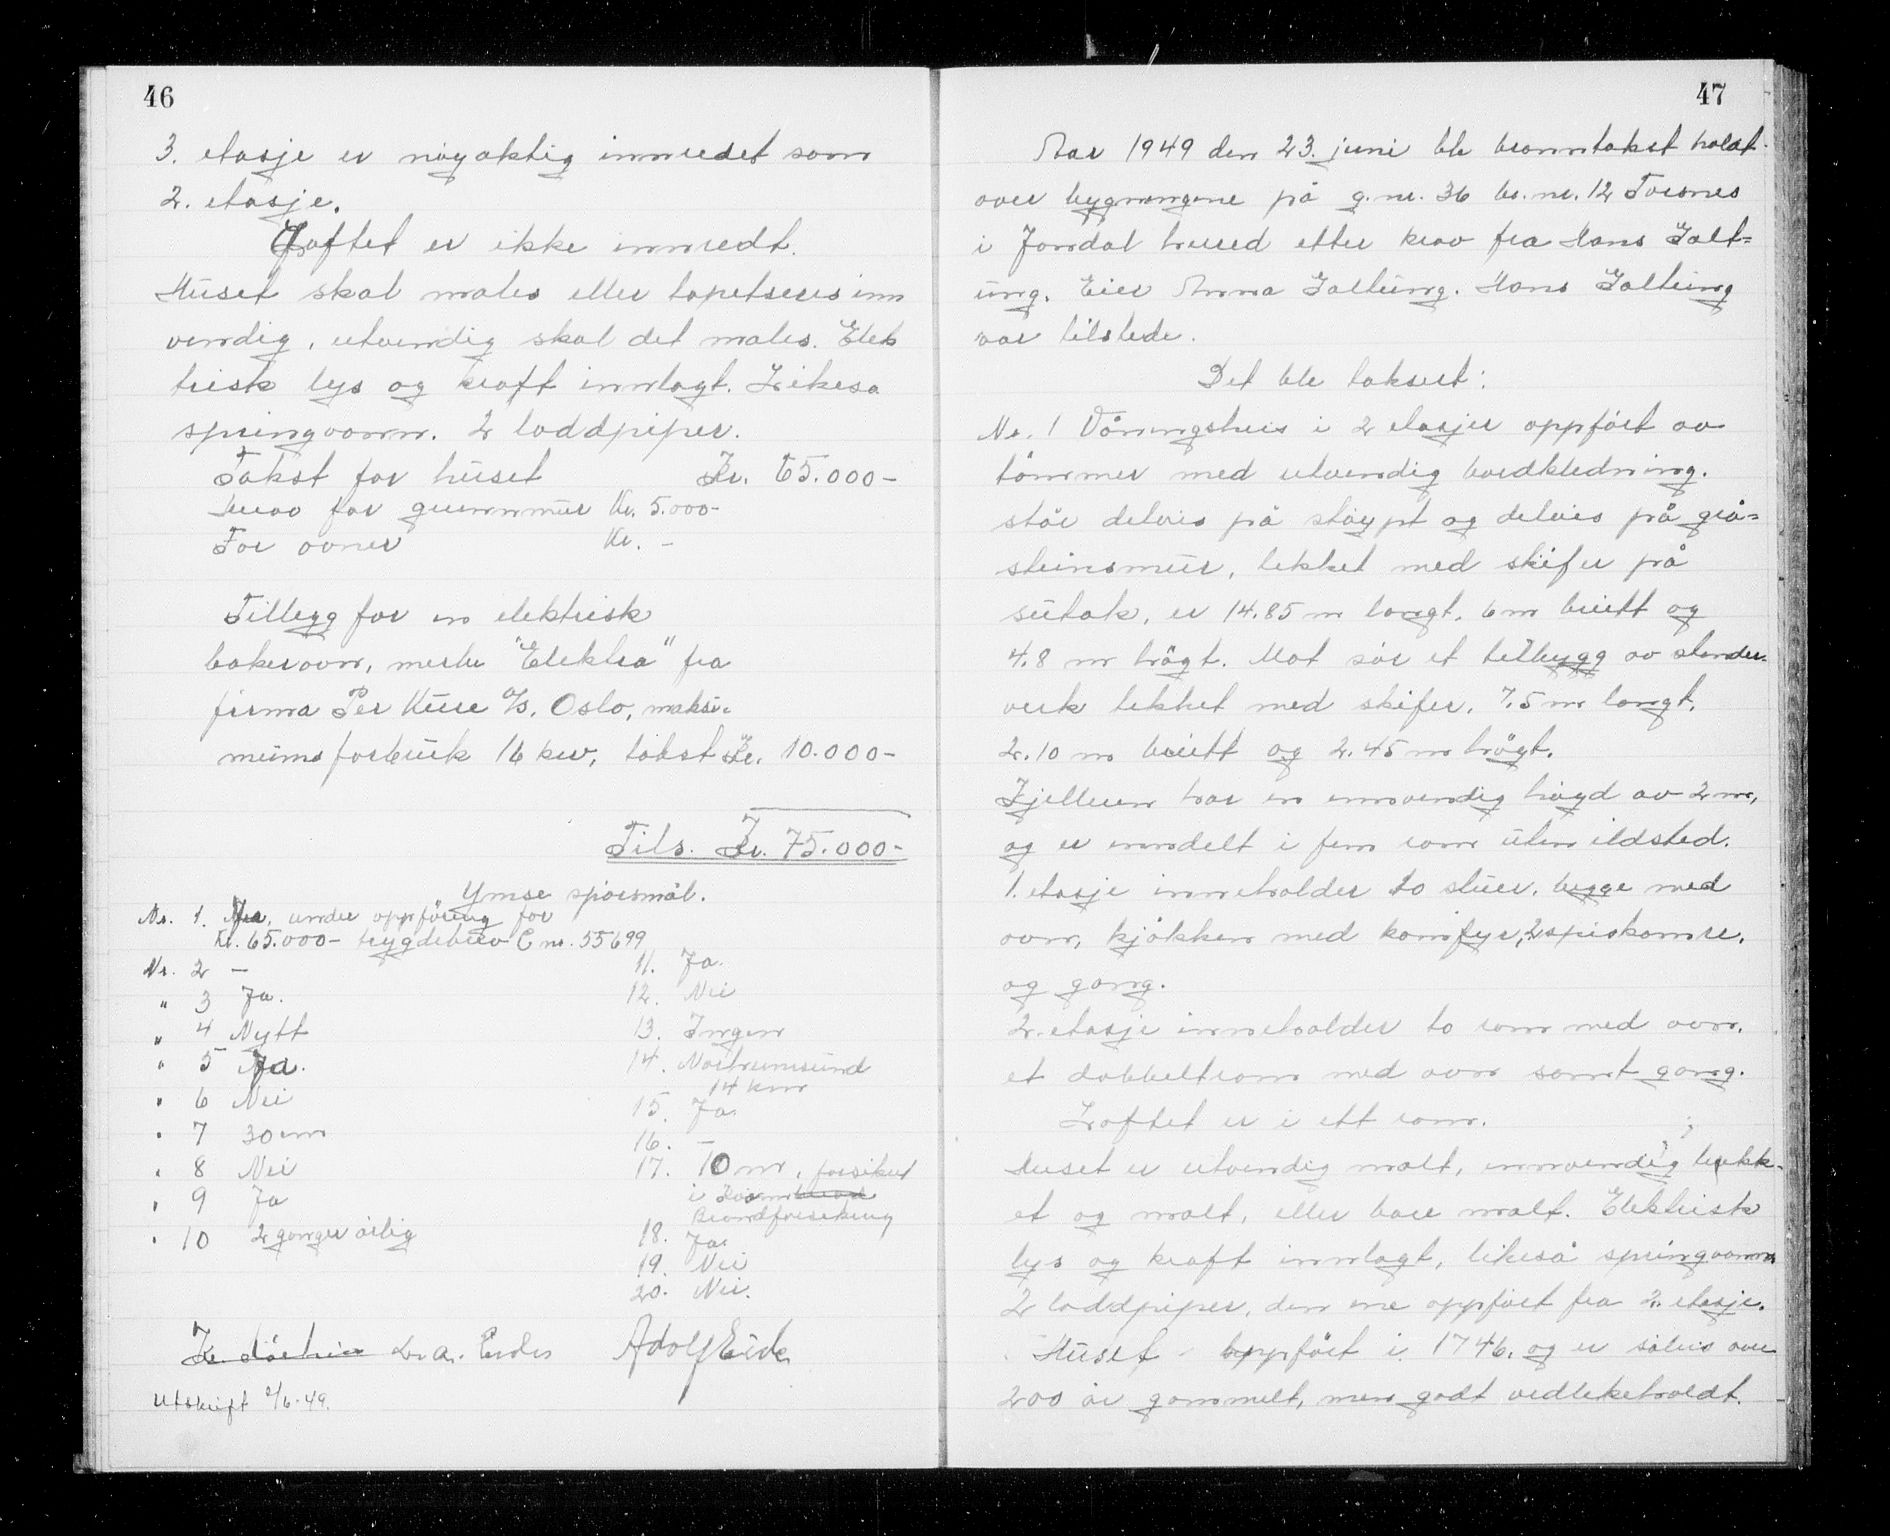 46
3. etasje er nöyaktig innredet som
2. etasje.
Loftet er ikke innredt.
Huset skal males eller tapetseres inn
vendig, utvendig skal det males. Elek
trisk lys og kraft innlagt. Likesa
springvann. 2 loddpiper.
Takst for huset Kr. 65.000-
Herav for grunnmur Kr. 5.000-
For ovner Kr. -
Tillegg for en elektrisk
bakerovn, merke "Elektra" fra
firma Per Kure A/S, Oslo, maksi-
mumsforbruk 16 kw, takst Kr. 10.000-
Tils. Kr. 75.000-
Ymse spörsmål.
Nr. 1. Ja, under oppföring for
Kr. 65.000- trygdebrev C nr. 55699
Nr. 2 -
" 3 Ja.
" 4 Nytt
" 5 Ja.
" 6 Nei
" 7 30 cm
" 8 Nei
" 9 Ja
" 10 2 ganger årlig
11. Ja.
12. Nei
13. Ingen
14. Norheimsund
14 km
15. Ja.
16. -
17. 10 m, forsikret
i
Brandforsikring
18. Ja.
19. Nei
20. Nei.
Adolf Eide
Utskrift 2/6-49.
47
Aar 1949 den 23. juni ble branntakst holdt
over bygningene på g.nr. 36 br.nr. 12 Torsnes
i Jondal herred etter krav fra Hans Galt=
ung. Eier Anna Galtung. Hans Galtung
var tilstede.
Det ble taksert:
Nr. 1 Våningshus i 2 etasjer oppfört av
tömmer med utvendig bordkledning.
står delvis på stöypt og delvis på grå=
steinsmur, tekket med skifer på
sutak, er 14.85 m langt. 6 m breitt og
4.8 m högt. Mot sör et tilbygg av stender-
verk tekket med skifer, 7.5 m langt,
2.10 m breitt og 2.45 m högt.
Kjelleren har en innvendig högd av 2 m,
og er inndelt i fem rom uten ildsted.
1. etasje inneholder to stuer, begge med
ovn, kjökken med komfyr, 2 spiskamre,
og gang.
2. etasje inneholder to rom med ovn,
et dobbeltrom med ovn samt gang.
Loftet er i ett rom.
Huset er utvendig malt, innvendig trekk-
et og malt, eller bare malt. Elektrisk
lys og kraft innlagt, likeså springvann
2 loddpiper, den ene oppfört fra 2. etasje.
Huset oppfört i 1746, og er således over
200 år gammelt, men godt vedlikeholdt.